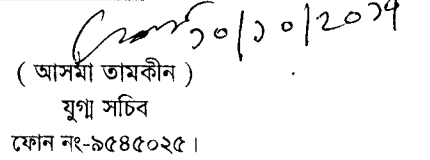 ১০/১০/২০১৭
( আসমা তামকীন )
যুগ্ম সচিব
ফোন নং-৯৫৪৫০২৫।